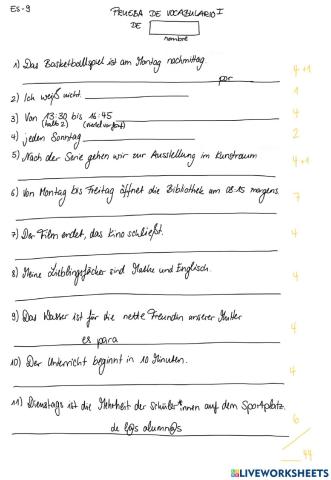 ES-9
PRUEBA DE VOCABULARIO I
DE
nombre
1) Das Basketballspiel ist am Montag nachmittag.
por
4+1
2) Ich weiß nicht.
1
3) Von 13:30 bis 16:45
(halb 2) (viertel vor fünf)
4
4) jeden Sonntag
2
5) Nach der Serie gehen wir zur Ausstellung im Kunstraum
4+1
6) Von Montag bis Freitag öffnet die Bibliothek um 08:15 morgens.
7
7) Der Film endet, das Kino schließt.
4
8) Meine Lieblingsfächer sind Mathe und Englisch.
4
9) Das Wasser ist für die nette Freundin unserer Mutter
es para
4
10) Der Unterricht beginnt in 10 Minuten.
4
11) Dienstags ist die Mehrheit der Schüler*innen auf dem Sportplatz.
de l@s alumn@s
6
44
LIVEWORKSHEETS